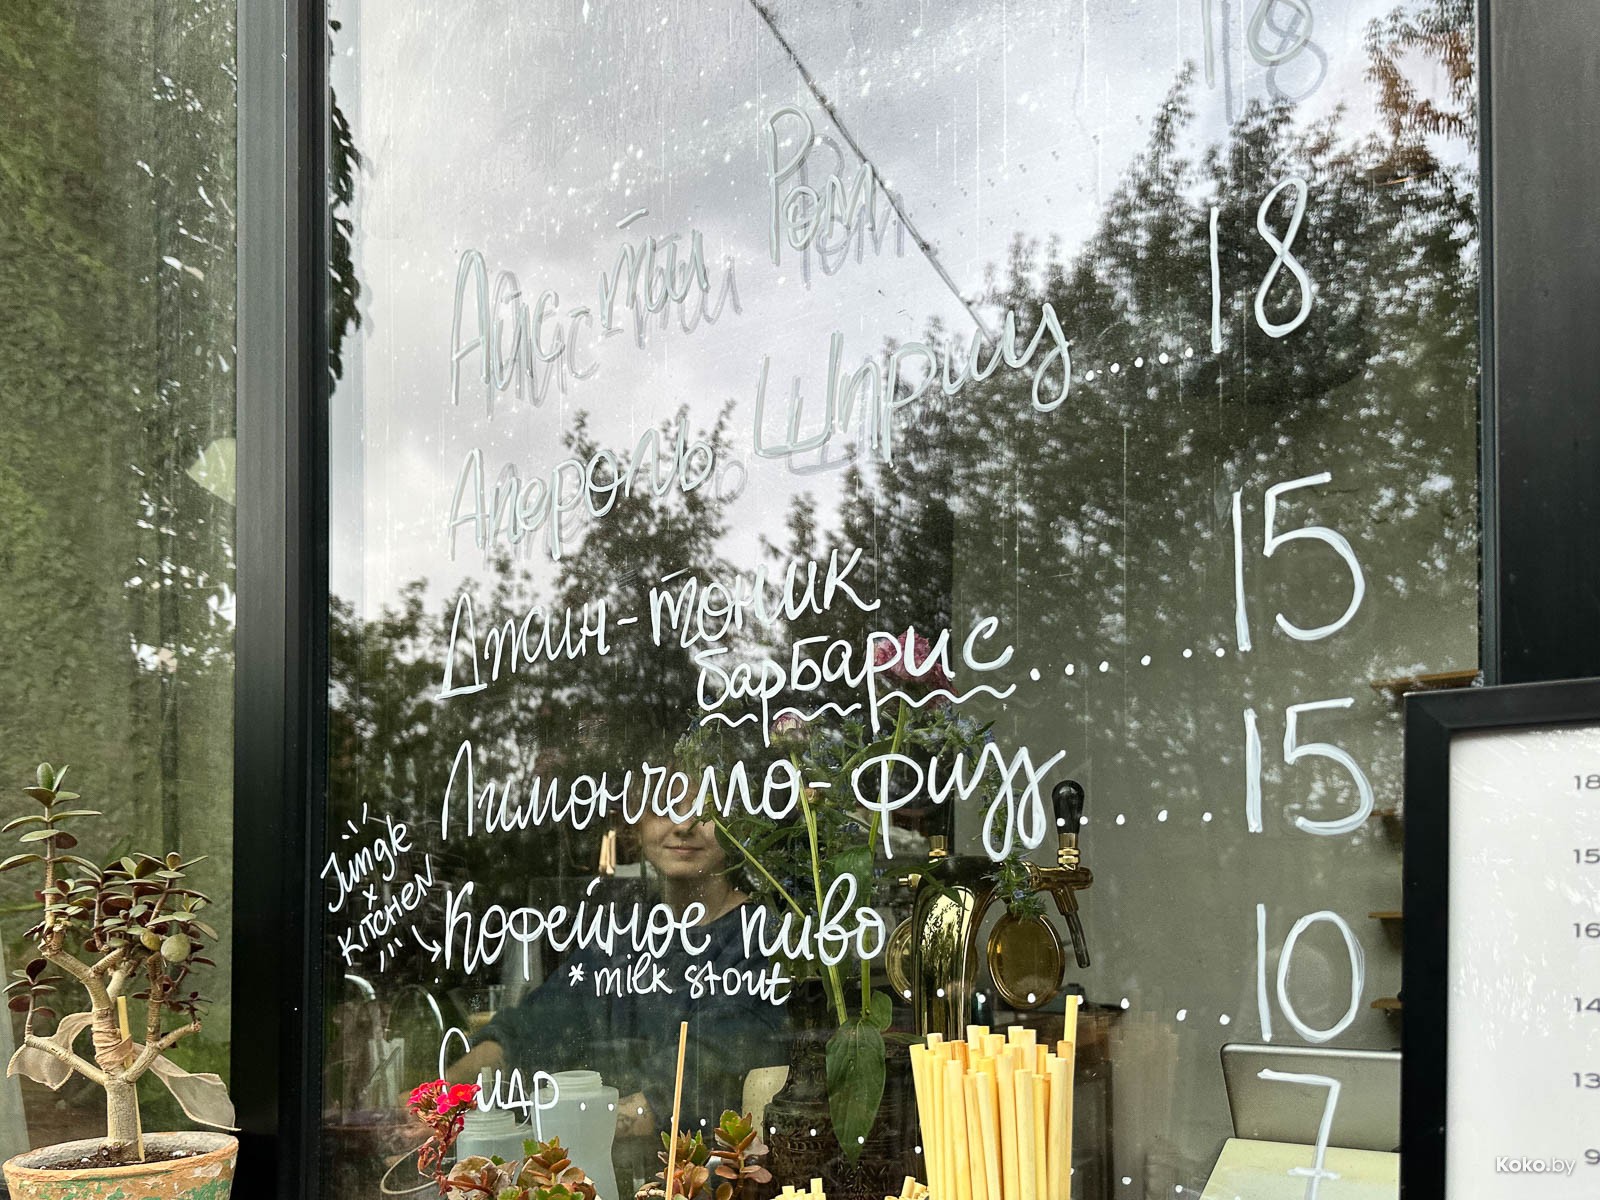 18
Айс-ти Ром
Апероль Шприц.....18
Джин-тоник
барбарис.......15
Лимончелло-физз.......15
Jungle
x
KITCHEN
Кофейное пиво.....10
*milk stout
Сидр.......7
18
15
16
14
13
9
Koko.by